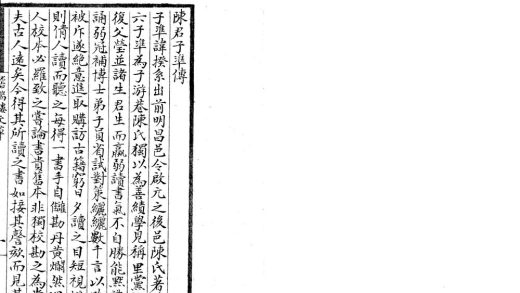 陳君子準傳
子準諱揆系出前明昌邑令啟元之後邑陳氏著
六子準為子游巷陳氏獨以為善績學見稱里黨
後父瑩並諸生君生而羸弱讀書氣不自勝能
誦弱冠補博士弟子員省試對策纚纚數千言以
被斥遂絕意進取購訪古籍窮日夕讀之目短視
則倩人讀而聽之每得一書手自讎勘丹黄爛然
人校本必羅致之嘗論書貴舊本非獨校勘之為
夫古人遠矣今得其所讀之書如接其謦欬而見其